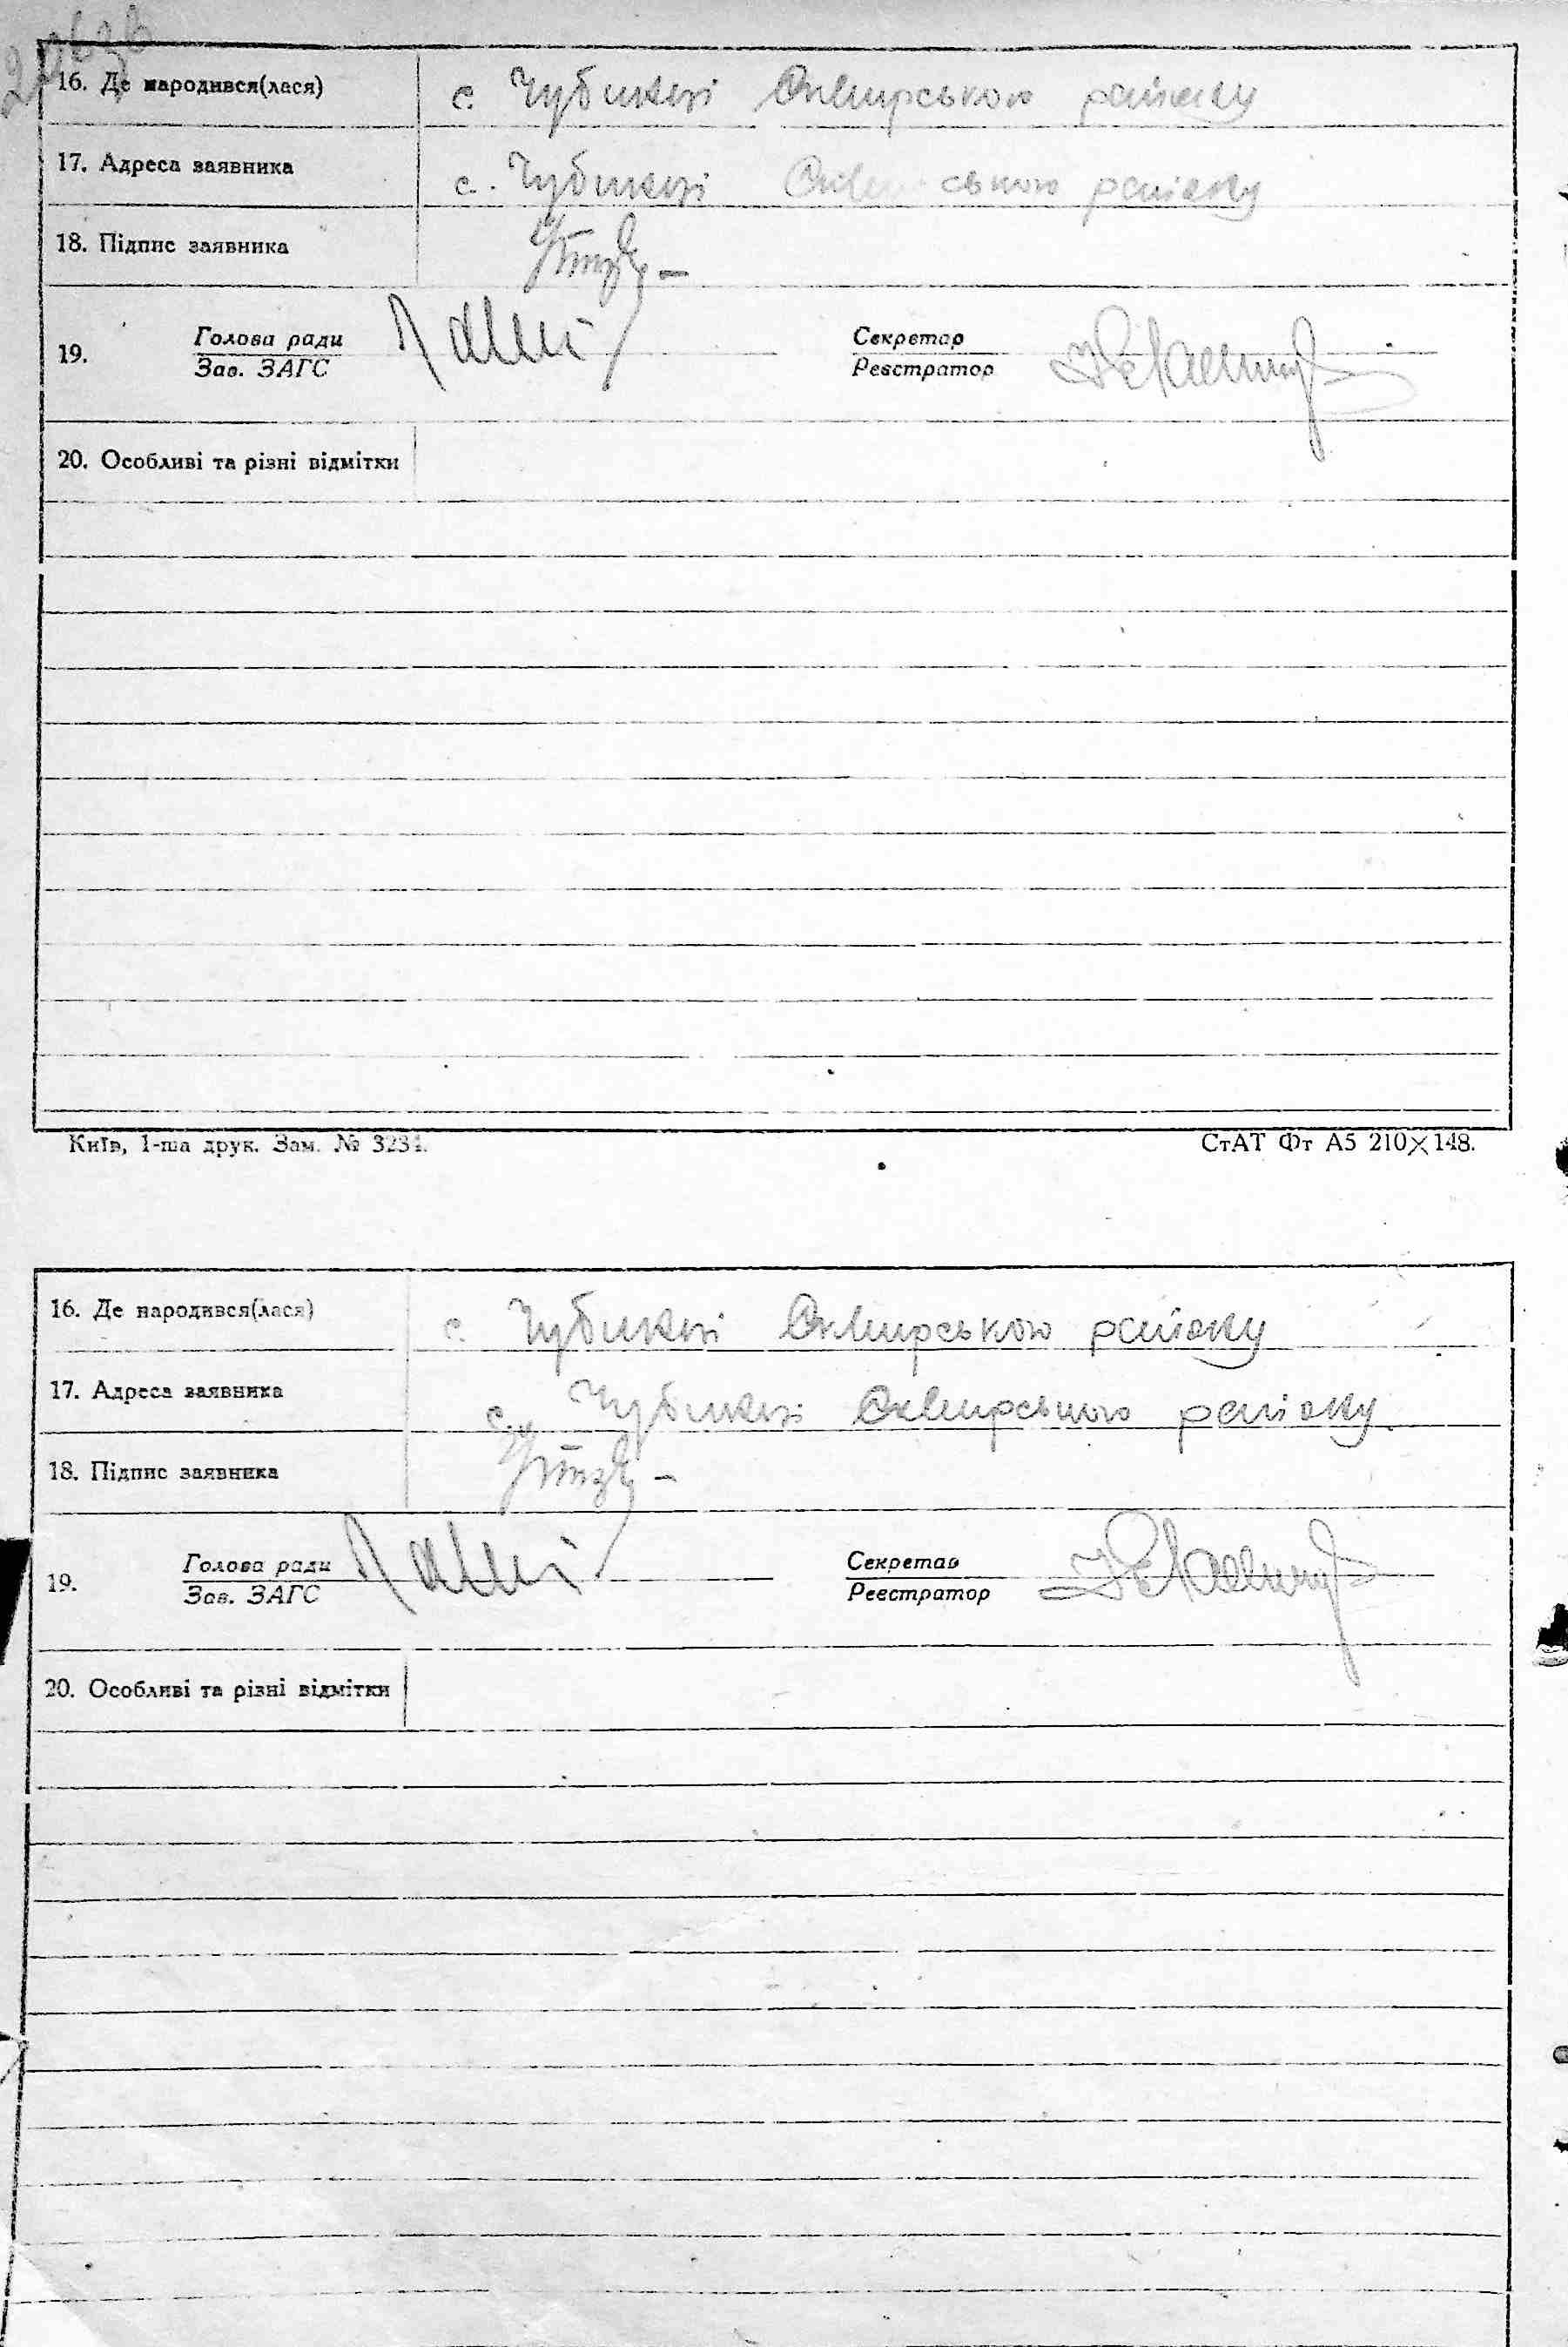 16. Де народився(лася) с. Чубинці Сквирського району
17. Адреса заявника с. Чубинці Скви ського району
18. Підпис заявника
19. Голова ради Секретар
Зав. ЗАГС Реєстратор
20. Особливі та різні відмітки
Київ, 1-ша друк. Зам. № 3234. СтАТ Фт А5 210×148.
16. Де народився(лася) с. Чубинці Сквирського району
17. Адреса заявника с. Чубинці Сквирського району
18. Підпис заявника
19. Голова ради Секретар
Зав. ЗАГС Реєстратор
20. Особливі та різні відмітки